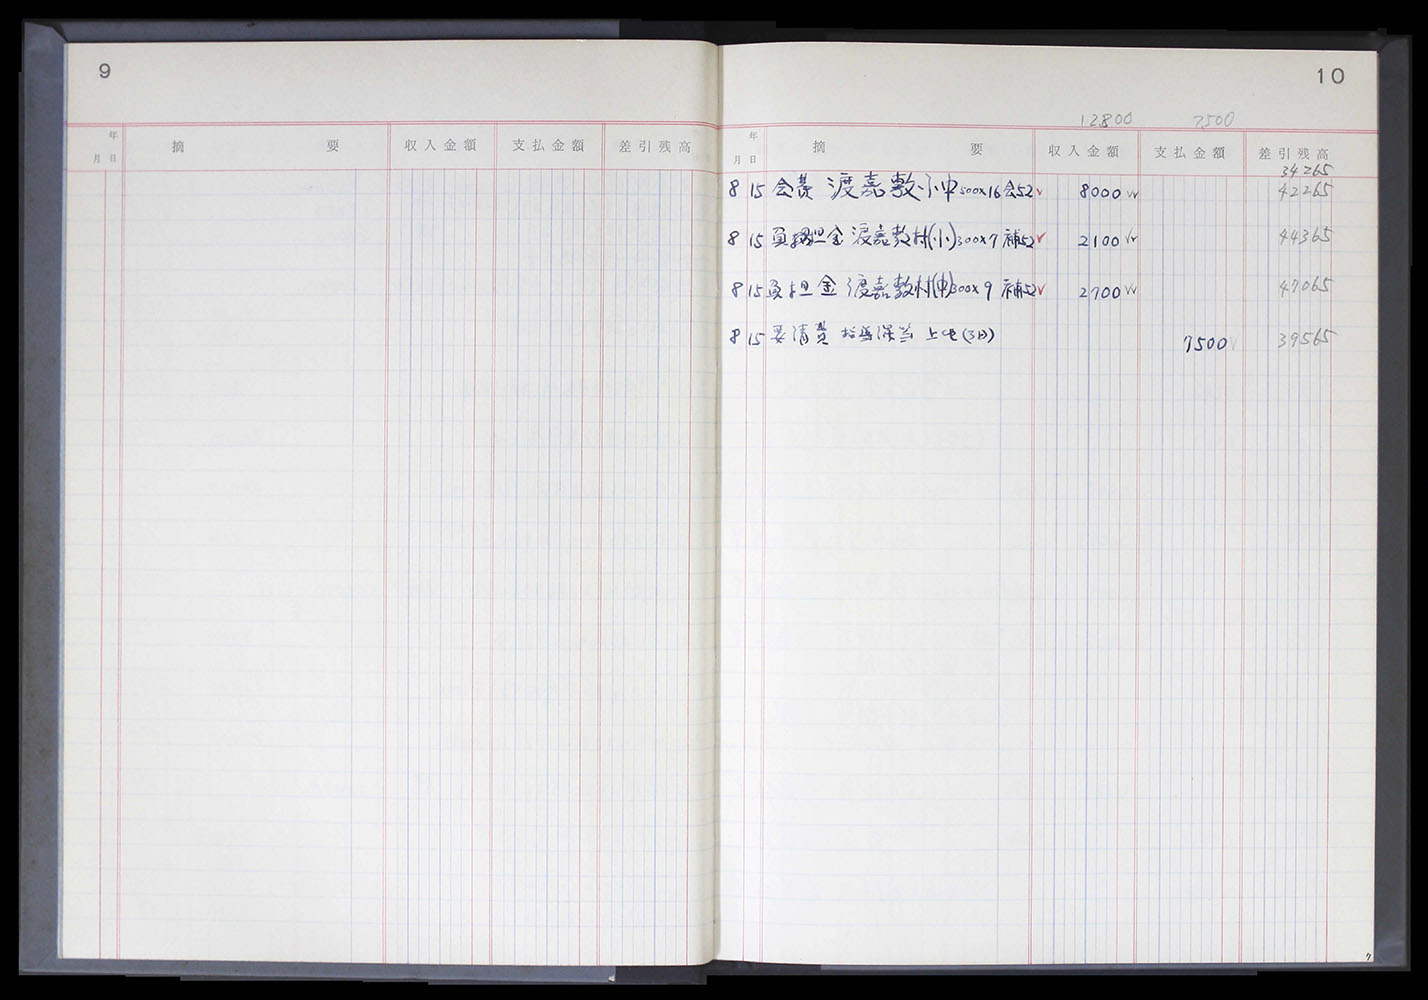 9
年
月 日 摘 要 収入金額 支払金額 差引残高
10
12800 7500
年
月 日 摘 要 収入金額 支払金額 差引残高
34265
8 15 会費 渡嘉敷小中 500×16 会52 8000 42265
8 15 負担金 渡嘉敷村(小) 300×7 補52 2100 44365
8 15 負担金 渡嘉敷村(中) 300×9 補52 2700 47065
8 15 要請費 (3日) 7500 39565
7